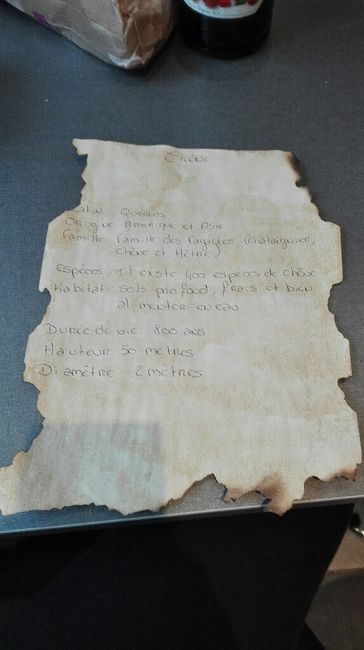 Chêne
Latin Quercus
Origine Amérique et Asie
Famille Famille des Fagacées (châtaignier,
Chêne et Hêtre)
Espèces Il existe 400 espèces de chêne
Habitat sols profond, frais et bien
alimenter en eau
Durée de vie 800 ans
Hauteur 50 mètres
Diamètre 2 mètres